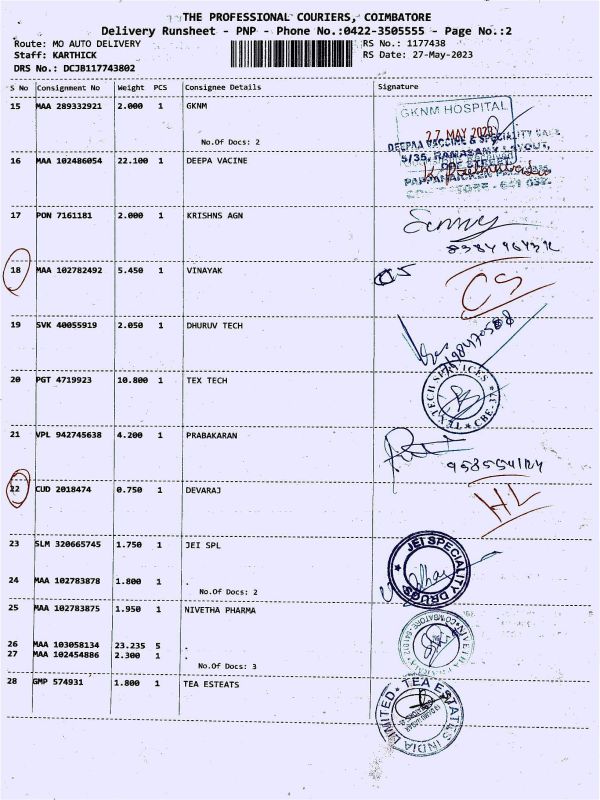 THE PROFESSIONAL COURIERS, COIMBATORE
Delivery Runsheet - PNP - Phone No.:0422-3505555 - Page No.:2
Route: MO AUTO DELIVERY
RS No.: 1177438
Staff: KARTHICK
RS Date: 27-May-2023
DRS No.: DCJB117743802
S No Consignment No Weight PCS Consignee Details Signature
15 MAA 289332921 2.000 1 GKNM
GKNM HOSPITAL
27 MAY 2023
No.Of Docs: 2
DEEPAA VACCINE & SPECIALITY
5/35, RANASAMY LAYOUT,
16 MAA 102486054 22.100 1 DEEPA VACINE
17 PON 7161181 2.000 1 KRISHNS AGN
18 MAA 102782492 5.450 1 VINAYAK
CS
CS
19 SVK 40055919 2.050 1 DHURUV TECH
20 PGT 4719923 10.800 1 TEX TECH
TEX TECH SERVICES * CBE-37 *
21 VPL 942745638 4.200 1 PRABAKARAN
22 CUD 2018474 0.750 1 DEVARAJ
HL
23 SLM 320665745 1.750 1 JEI SPL
JEI SPECIALITY DRUGS
24 MAA 102783878 1.800 1 .
No.Of Docs: 2
25 MAA 102783875 1.950 1 NIVETHA PHARMA
NIVETHA PHARMA
26 MAA 103058134 23.235 5 .
27 MAA 102454886 2.300 1 .
No.Of Docs: 3
28 GMP 574931 1.800 1 TEA ESTEATS
TEA ESTATES INDIA LIMITED